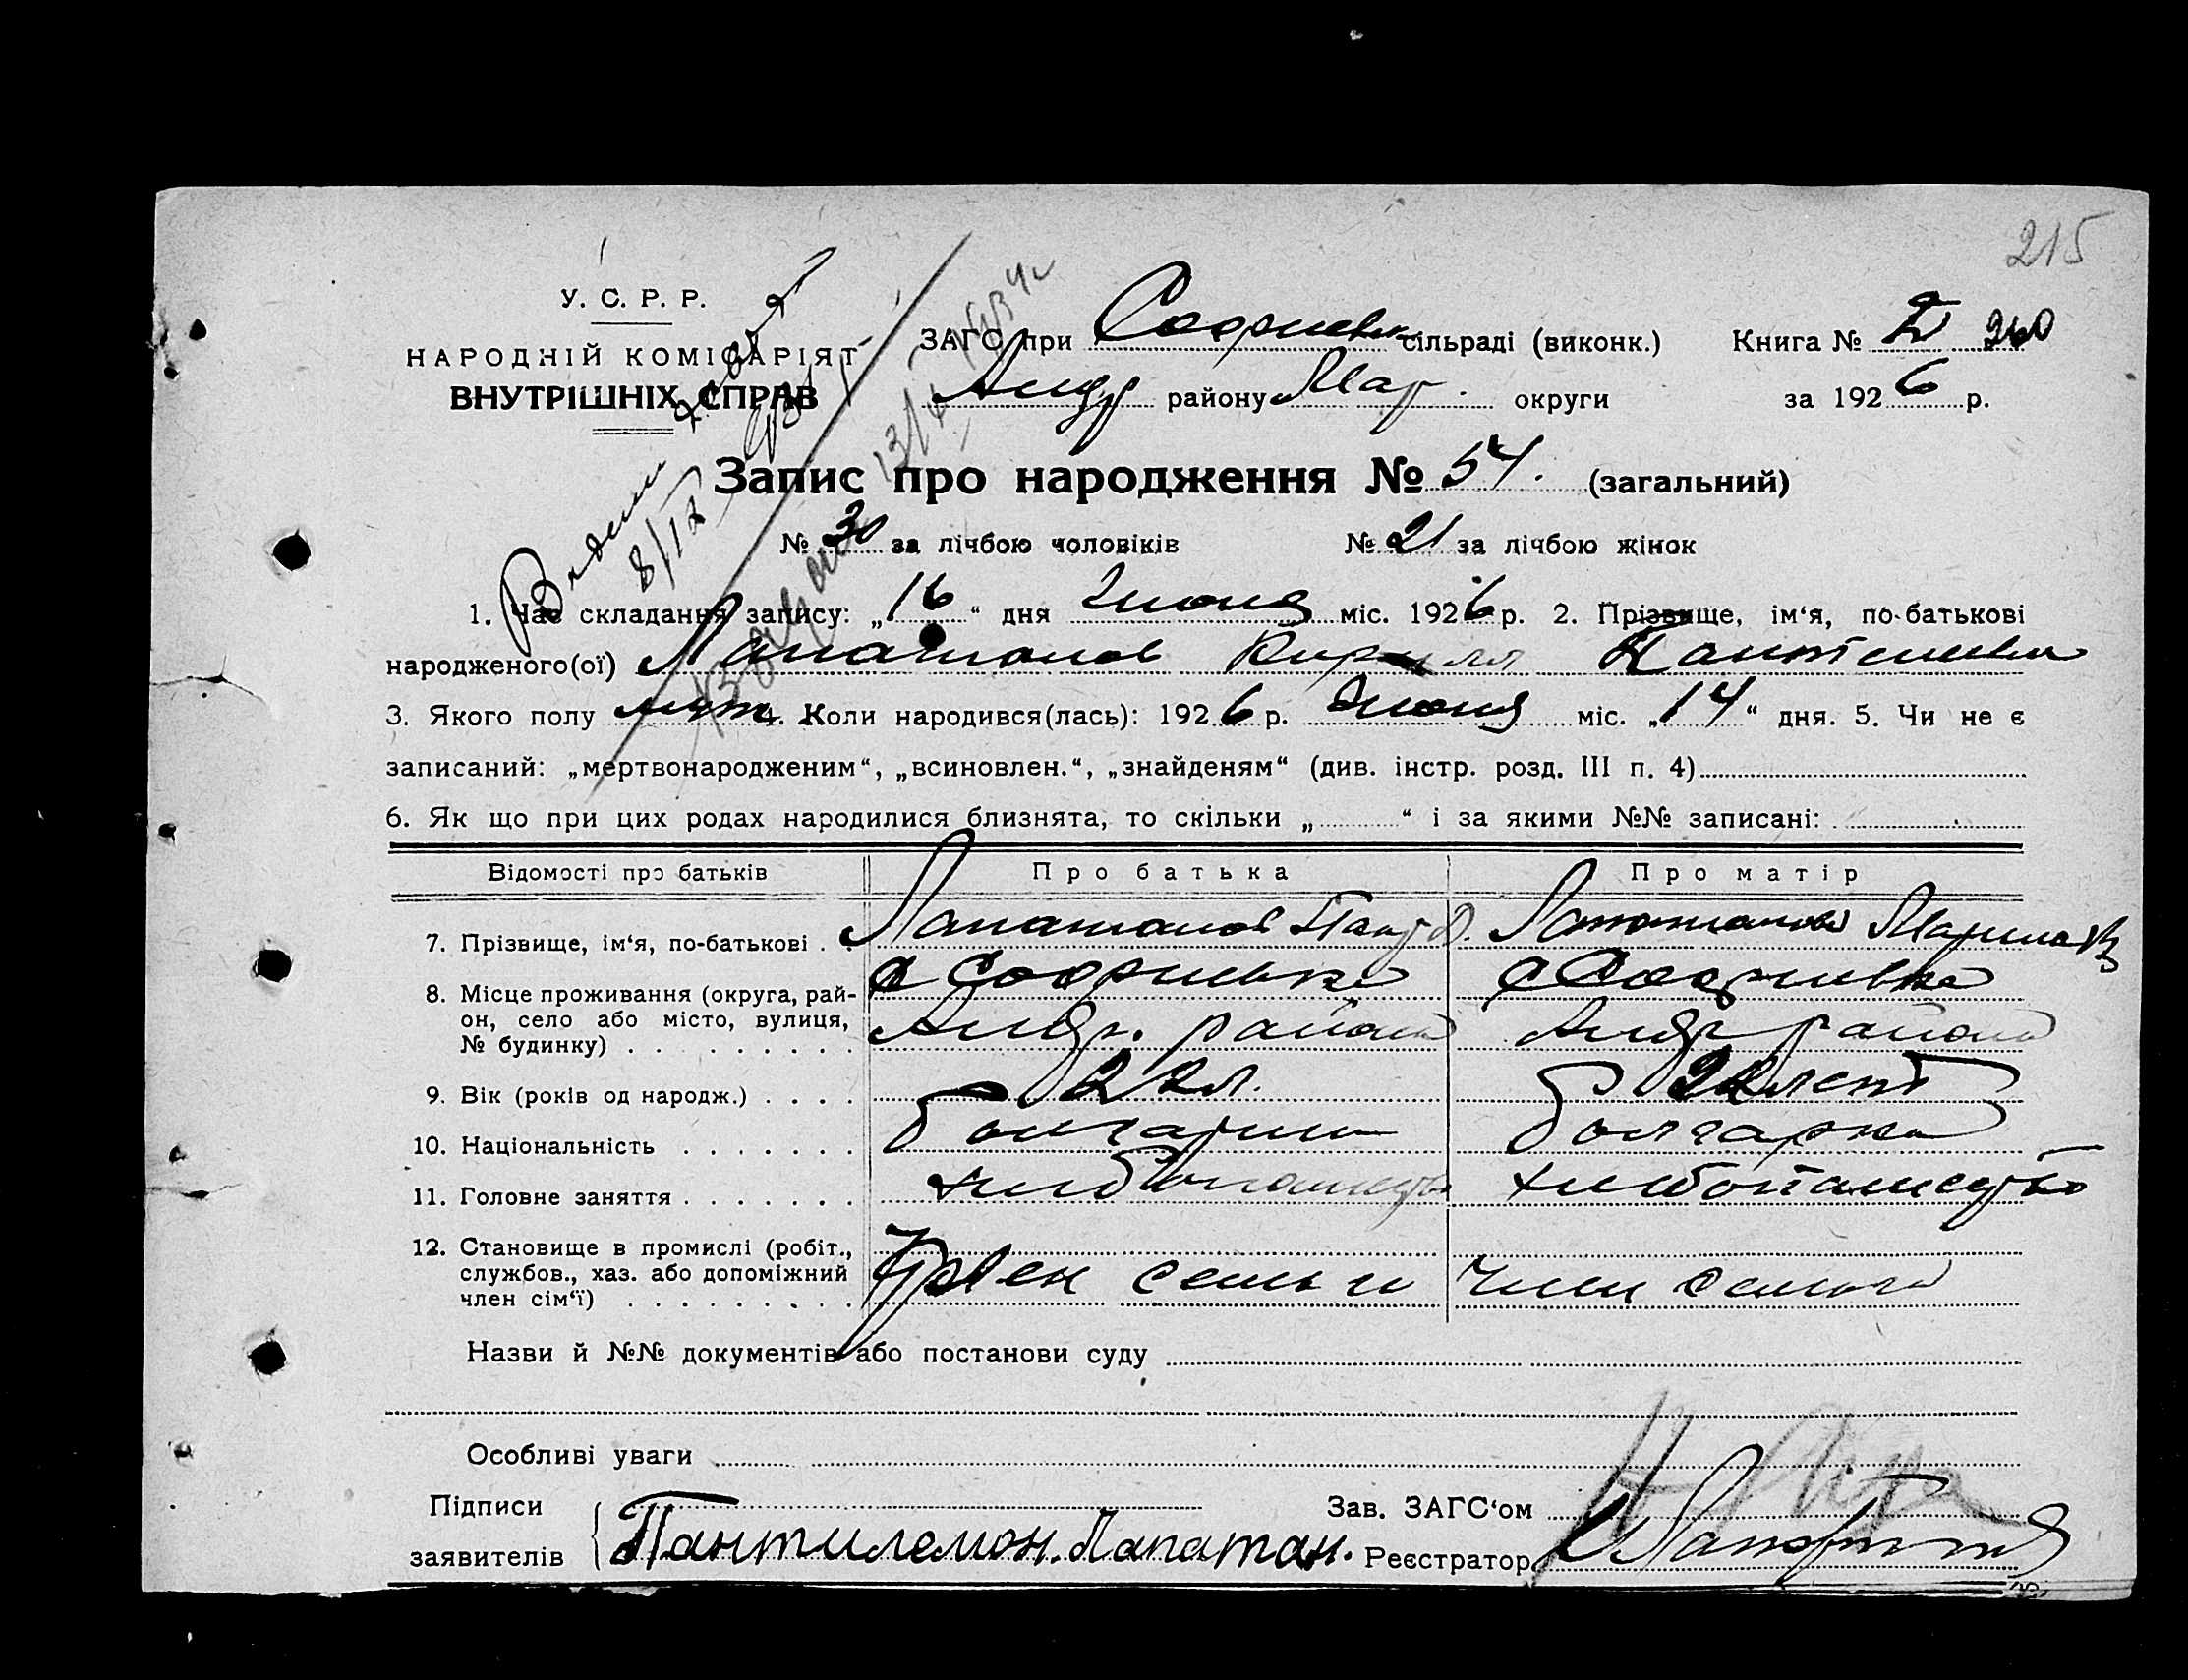 215
У. С. Р. Р.
НАРОДНІЙ КОМІСАРІЯТ
ВНУТРІШНІХ СПРАВ
ЗАГС при Софиевк сільраді (виконк.) Книга № 2 260
Андр району Мар. округи за 1926 р.
Запис про народження № 54. (загальний)
№ 30 за лічбою чоловіків № 21 за лічбою жінок
1. Час складання запису: „16“ дня Июня міс. 1926 р. 2. Прізвище, ім‘я, по-батькові
народженого(ої) Папатанов Кирилл
3. Якого полу муж 4. Коли народився(лась): 1926 р. Июня міс. „14“ дня. 5. Чи не є
записаний: „мертвонародженим“, „всиновлен.“, „знайденям“ (див. інстр. розд. III п. 4)
6. Як що при цих родах народилися близнята, то скільки „ “ і за якими №№ записані:
Відомості про батьків Про батька Про матір
7. Прізвище, ім‘я, по-батькові . . Папатанов Пант Папатанова Марина
8. Місце проживання (округа, рай-
он, село або місто, вулиця,
№ будинку) . . . . . . . . .
с Софиевка с Софиевка
Андр. района Андр района
9. Вік (років од народж.) . . . . 22 л. 22 лет
10. Національність . . . . . . . болгарин болгарка
11. Головне заняття . . . . . . . хлебопашество хлебопашество
12. Становище в промислі (робіт.,
службов., хаз. або допоміжний
член сім‘ї) . . . . . . . . .
Член семьи Член семьи
Назви й №№ документів або постанови суду
Особливі уваги
Підписи
заявителів Пантилемон. Папатан.
Зав. ЗАГС‘ом
Реєстратор